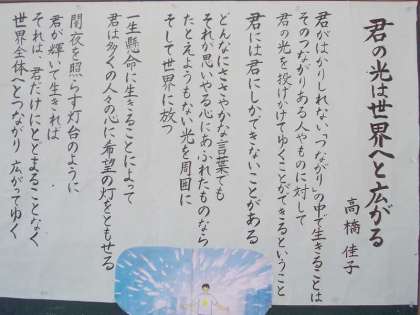 君の光は世界へと広がる
高橋佳子
君がはかりしれない「つながり」の中で生きることは
そのつながりある人やものに対して
君の光を投げかけてゆくことができるということ
君には君にしかできないことがある
どんなにささやかな言葉でも
それが思いやる心にあふれたものなら
たとえようもない光を周囲に
そして世界に放つ
一生懸命に生きることによって
君は多くの人々の心に希望の灯をともせる
闇夜を照らす灯台のように
君が輝いて生きれば
それは、君だけにとどまることなく
世界全体へとつながり広がってゆく